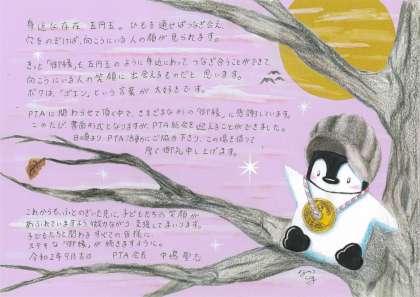 身近な存在、五円玉。ひもを通せばつなぎ合え
穴をのぞけば、向こうにいる人の顔が見られます。
きっと「御縁」も五円玉のように身近にあって つなぎ合うことができて
向こうにいる人の笑顔に出会えるものだと思います。
ボクは、「ゴエン」という言葉が大好きです。
PTAに関わらせて頂く中で、さまざまな「御縁」に感謝しています。
このたび 書面形式となりますが、PTA総会を迎えることができました。
日頃よりPTA活動にご協力下さり、この場を借りて
厚く御礼申し上げます。
これからも、ふとのぞいた先に、子どもたちの笑顔が
あふれていますよう 微力ながら支援してまいります。
子どもたちと関わるすべての皆様に
ステキな「御縁」が続きますように。
PTA会長